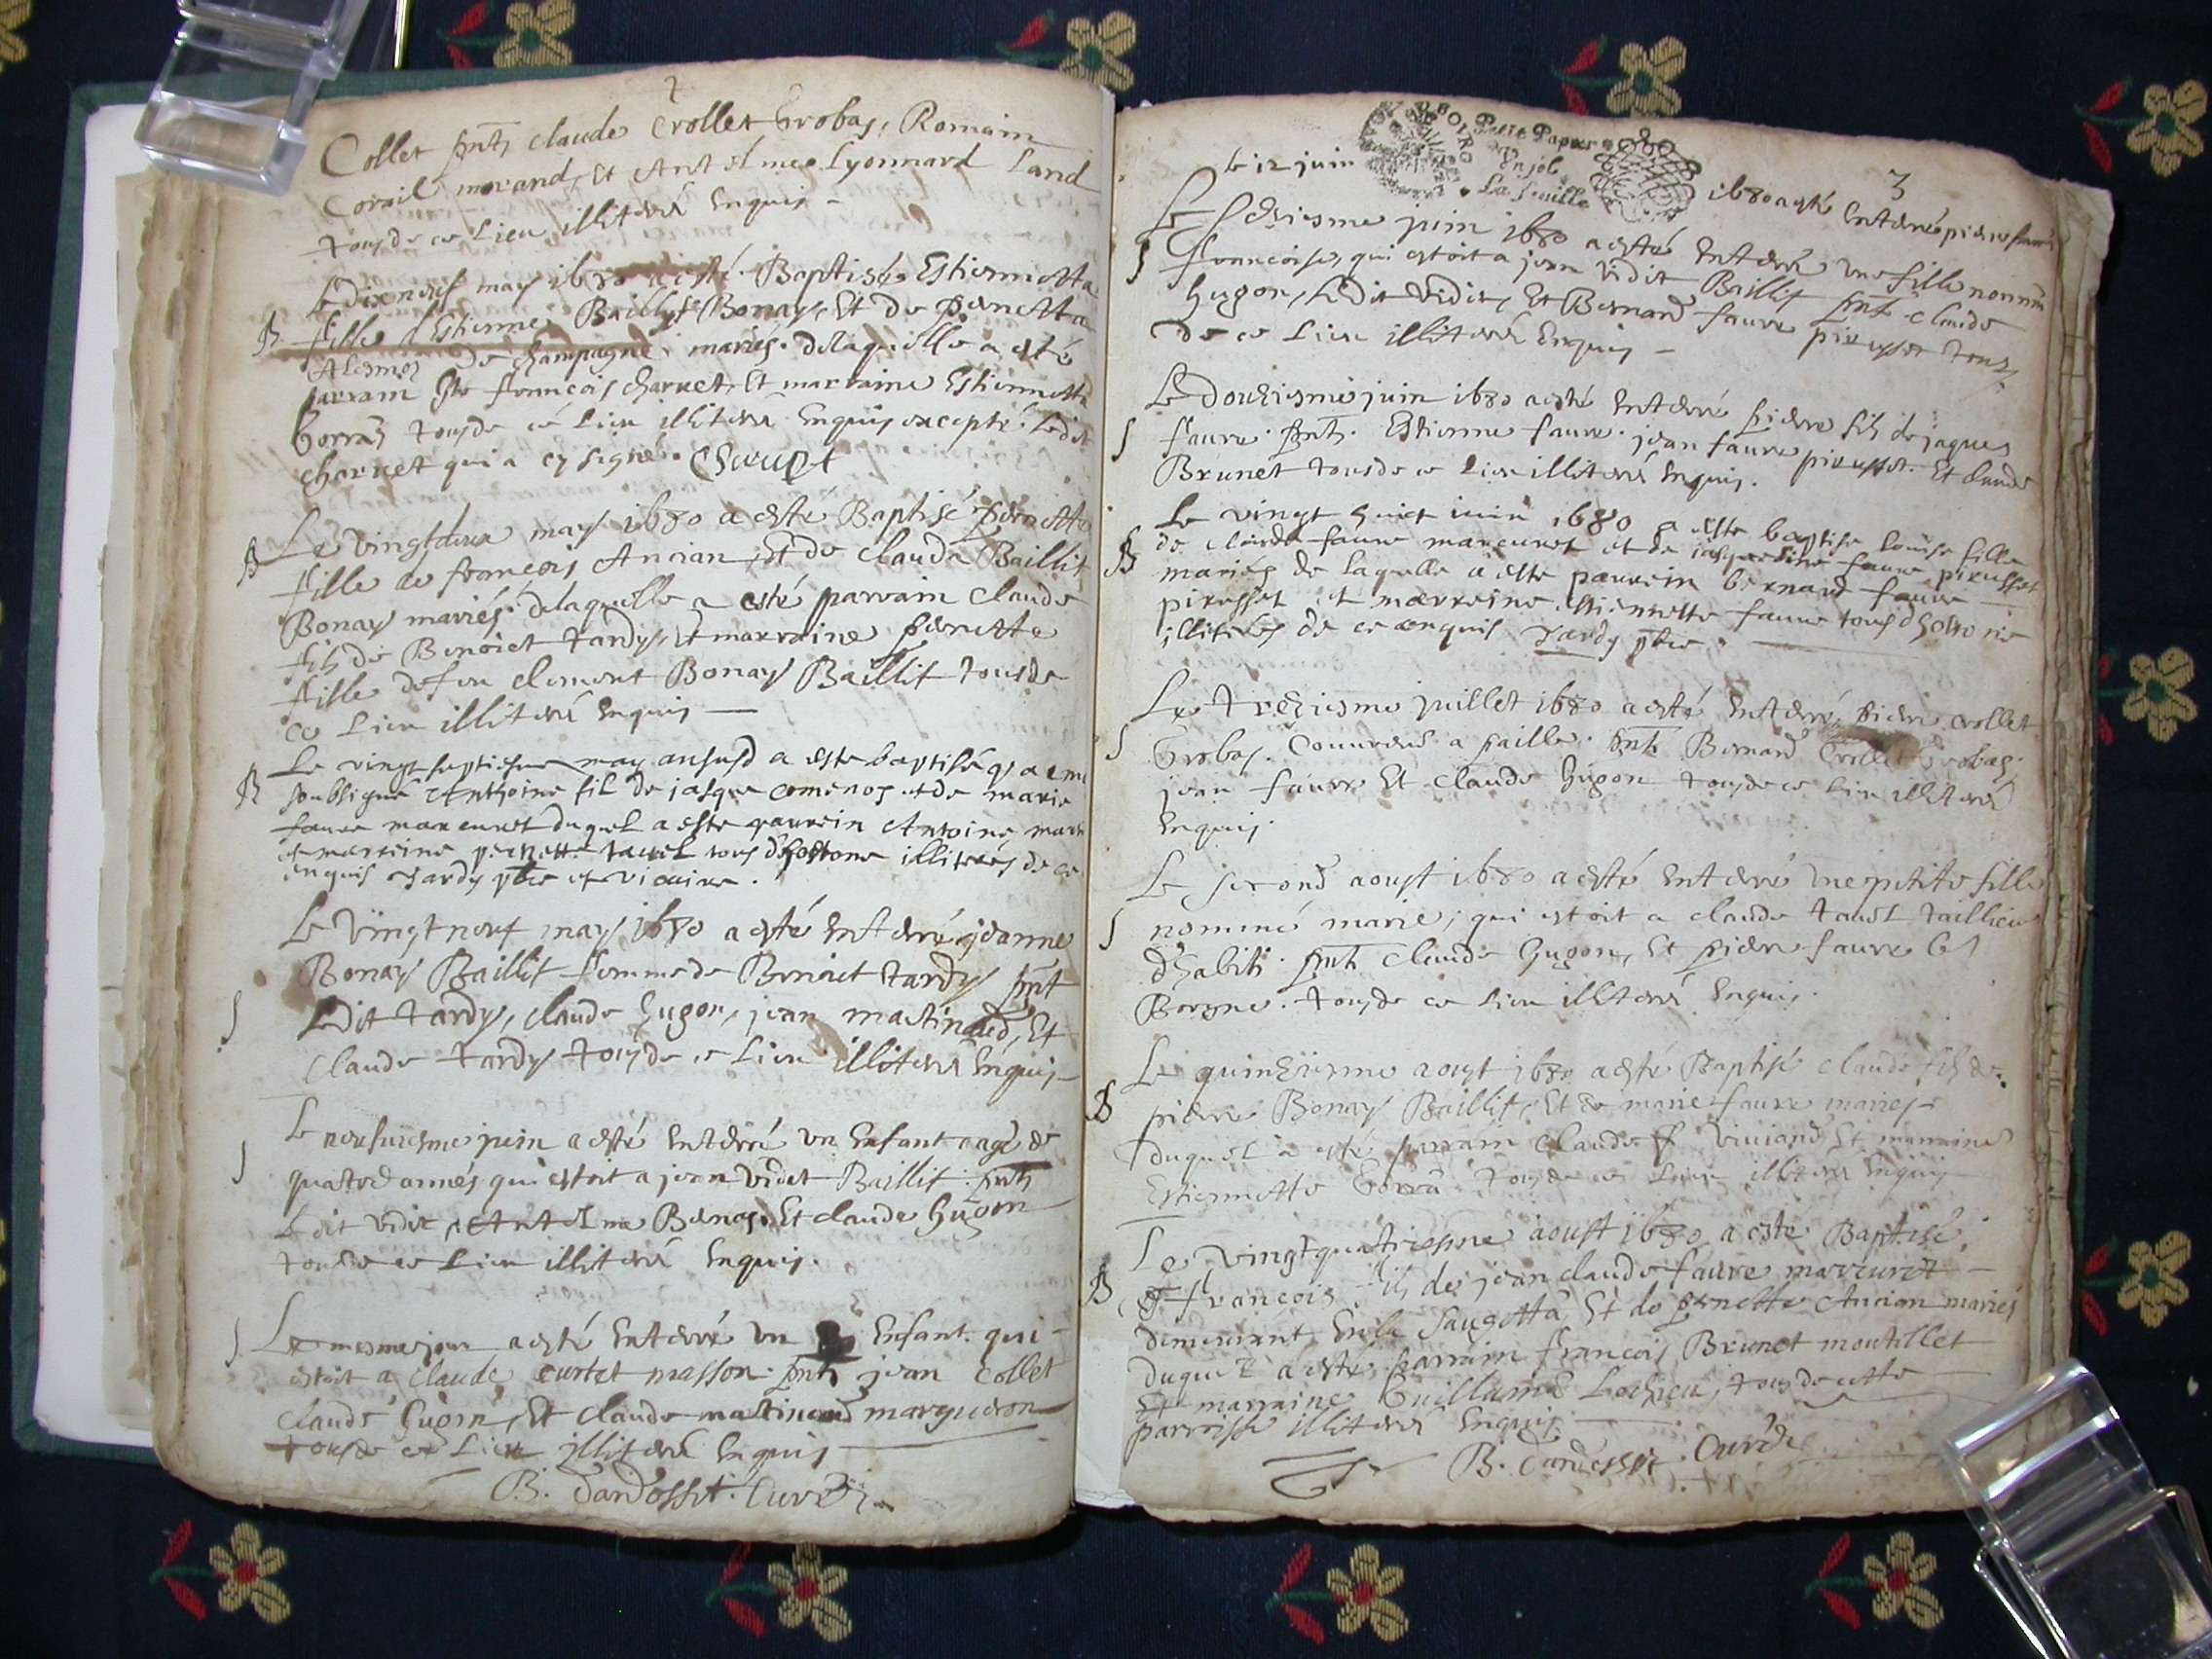 2
Collet pnts claude Crollet Grobas, Romain
Corail morand, Et Anthelme Lyonnard Land
tous de ce Lieu illiteré Enquis
Le dixneuf may 1680 a esté Baptisé Estiennetta
B fille d'Estienne Baillyt Bonay, Et de Pernetta
de champagne mariés. de laquelle a esté
parrain Sr françois charvet, Et marraine Estiennetta
tous de ce Lieu illiteré Enquis excepté Ledit
charvet qui a cy signé. Charvet
Le vingtdeux may 1680 a esté Baptisé pernette
B fille de françois Ancian, Et de clauda Baillit
Bonay mariés. de laquelle a esté parrain claude
fils de Benoict tardy, Et marraine pernette
fille de feu clement Bonay Baillit tous de
ce Lieu illiteré Enquis
Le vingt septiesme may an susd a este baptisé p moy
B soubsigné Anthoine fil de jasque comenos et de marie
faure marcuret duquel a este parrein Antoine
et marreine pernette tavel tous illiterés de ce
enquis tardy pbre et vicaire.
Le vingt neuf may 1680 a esté Enterré jeanne
Bonay Baillit femme de Benoict tardy pnt
S Ledit tardy, claude hugon, jean martinand, Et
Claude tardy tous de ce Lieu illiteré Enquis
Le neufviesme juin a esté Enterré un Enfant aagé de
S quatre années qui estoit a jean vidit Baillit. pnts
Ledit vidit, Anthelme Et claude hugon
tous de ce Lieu illiteré Enquis.
S Le mesme jour a esté Enterré un Enfant. qui
estoit a claude curtet masson. pnts jean Collet
claude hugon, Et claude martinand margueron
tous de ce Lieu illiteré Enquis
B. Dardossit. Curé
3
Petit Papier
Un sol
La feuille
le 12 juin 1680 a esté Enterré pierre faure
Le juin 1680 a esté Enterré une fille nommé
S francoise, qui estoit a jean vidit Baillit pnt claude
hugon, Ledit vidit, Et Bernard faure pirusset tous
de ce Lieu illiteré Enquis
Le Douziesme juin 1680 a esté Enterré pierre fils de jaques
S faure. pnts. Estienne faure. jean faure pirusset. Et claude
Brunet tous de ce Lieu illiteré Enquis.
Le vingt huict iuin 1680 a este baptise louise fille
de claude faure marcuret et de faure pirusset
B maries de laquelle a este parrein bernard faure
pirusset et marreine estiennette faure tous
illiterés de ce enquis tardy pbre.
Le treziesme juillet 1680 a esté Enterré, pierre crollet
S Grobas. Couvreur a paille. pnts Bernard Crollet Grobas.
jean faure Et claude hugon tous de ce Lieu illiteré
Enquis.
Le second aoust 1680 a esté Enterré une petite fille
S nommé marie, qui estoit a claude tavel taillieur
d'habits. pnts claude hugon, Et pierre faure le
Borgne. tous de ce Lieu illiteré Enquis.
Le quinziesme aoust 1680 a esté Baptisé claude fils de
B pierre Bonay Baillit, Et de marie faure mariés
duquel a esté parrain claude viviand Et marraine
Estiennette tous de ce Lieu illiteré Enquis
Le vingtquatriesme aoust 1680 a esté Baptisé
B francois fils de jean claude faure marcuret
demeurant En la Saugetta Et de pernette Ancian mariés
duquel a esté parrain francois Brunet moutillet
Et marraine Guillauma tous de cette
parroisse illiteré Enquis
B. Dardossit. Curé